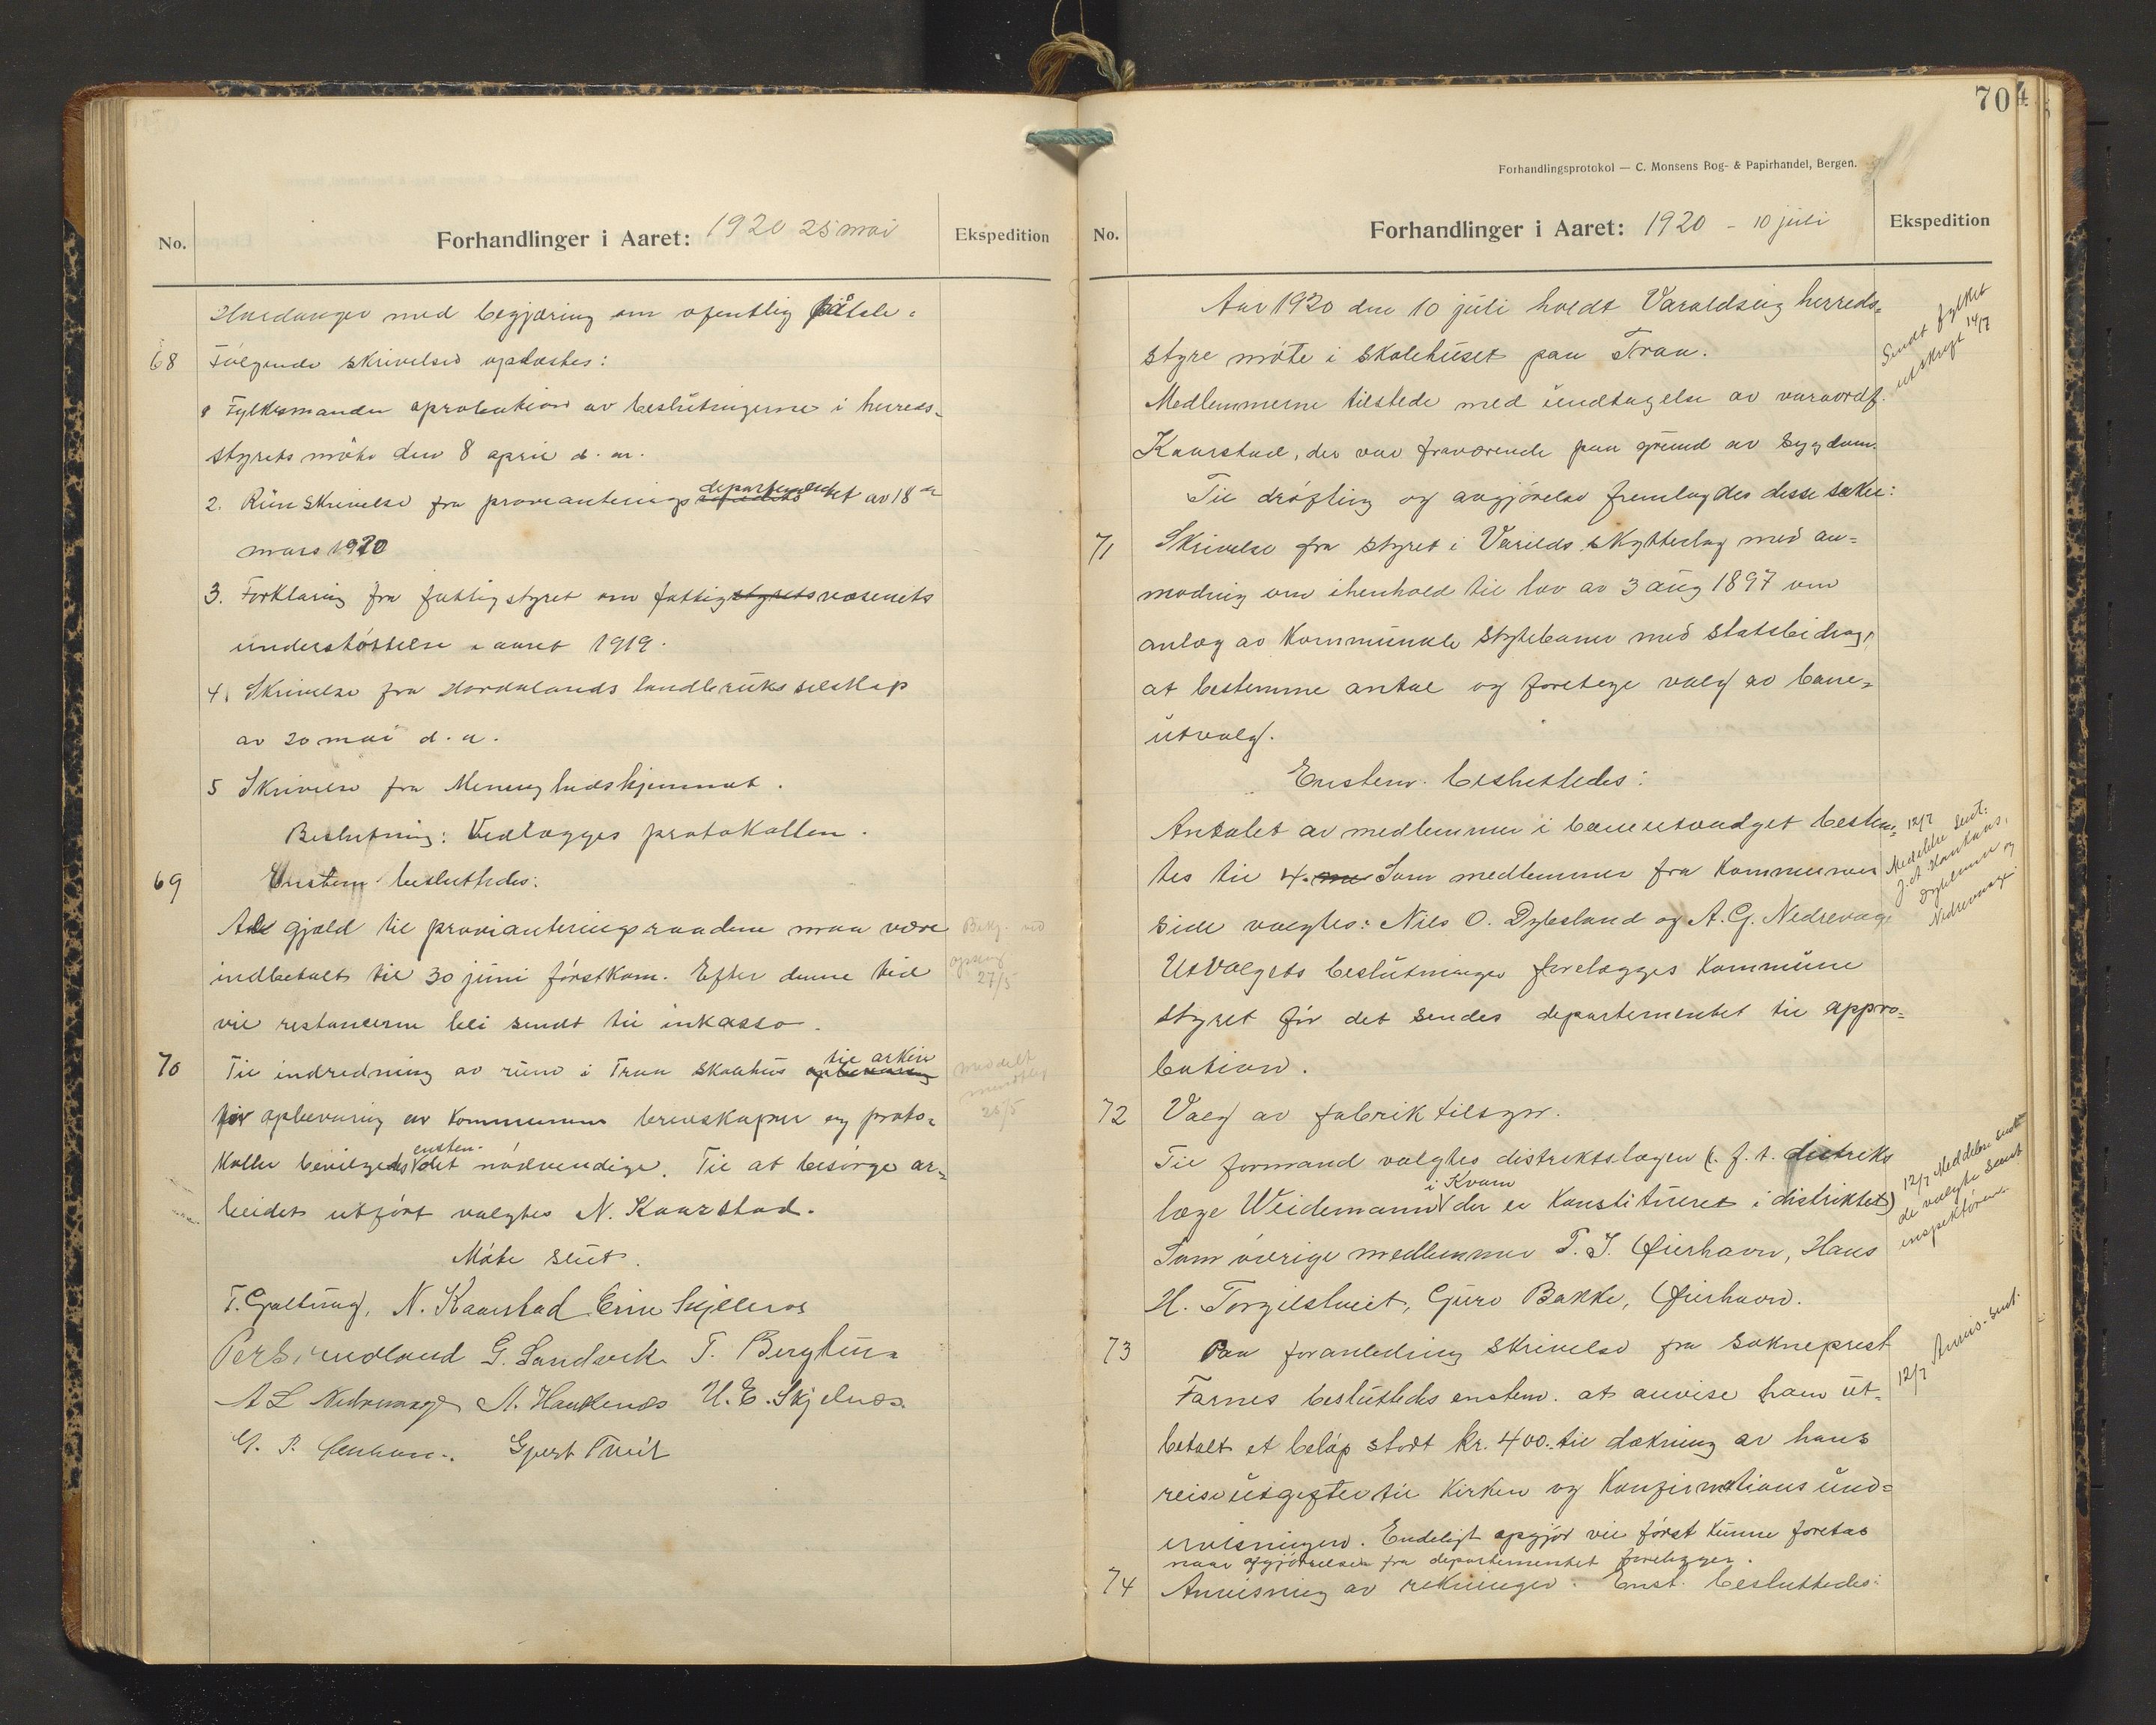 No.
Forhandlinger i Aaret: 1920 25 mai
Ekspedition
Hardanger med begjæring om ofentlig påtale.
68 Følgende skrivelser oplæstes:
1 Fylkesmanden aprobation av beslutningerne i herreds-
styrets møte den 8 april d. a.
2. Rundskrivelse fra provianteringsdepartementet av 18de
mars 1920
3. Forklaring fra fattigstyret om fattigstyretsvæsenets
understøttelse i aaret 1919.
4. Skrivelse fra Hordalands landbruksselskap
av 20 mai d. a.
5 Skrivelse fra Menighedshjemmet.
Beslutning: Vedlægges protokollen.
69 Enstem. besluttedes:
Al gjæld til provianteringsraadene maa være
indbetalt til 30 juni førstkom. Efter denne tid
vil restancerne bli sendt til inkasso.
Bekj. ved
opslag
27/5
70 Til indredning av rum i Traa skolehus til arkiv
for opbevaring av kommunens brevskaper og proto-
koller bevilgedes ensten. det nødvendige. Til at besørge ar-
beidet utført valgtes N. Kaarstad.
meddelt
mundtlig
25/5
Møte slut.
T. Galtung, N. Kaarstad Eirin Skjelnes
Per Sundland G. Sandvik T. Bergtun
A L Nedrevaage A. Haukenæs H. E. Skjelnæs.
G. P. Gjert Tveit
704
Forhandlingsprotokol — C. Monsens Bog- & Papirhandel, Bergen.
No.
Forhandlinger i Aaret: 1920 - 10 juli
Ekspedition
Aar 1920 den 10 juli holdt Varaldsøy herreds-
styre møte i skolehuset paa Traa.
Medlemmerne tilstede med undtagelse av varaordf.
Kaarstad, der var fraværende paa grund av sygdom.
Sendt fylket
utskrift 14/7
Til drøfting og avgjørelse fremlagdes disse saker:
71 Skrivelse fra styret i Varilds skytterlag med an-
modning om ihenhold til lov av 3 aug 1897 om
anlæg av kommunale skytebaner med statsbidrag,
at bestemme antal og foretage valg av bane-
utvalg.
Enstem. besluttedes:
Antalet av medlemmer i baneutvalget bestem-
tes til 4. me Som medlemmer fra kommunens
side valgtes: Nils O. Dybsland og A. G. Nedrevage
12/7
Meddelelse sendt:
J. A. Haukaas,
Dybsland og
Nedrevaage
Utvalgets beslutninger forelægges kommune
styret før det sendes departementet til appro-
bation.
72 Valg av fabriktilsyn.
Til formand valgtes distriktslægen (f. t. distrikts
læge Weidemann i Kvam der er konstitueret i distriktet)
Som øvrige medlemmer T. J. Øierhavn, Hans
H. Torgilstveit, Guro Bakke, Øierhavn.
12/7 Meddelse sendt
de valgte samt
inspektøren
73 Paa foranledning skrivelse fra sokneprest
Farnes besluttedes enstem. at anvise ham ut-
betalt et beløp stort kr. 400.. til dækning av hans
reiseutgifter til kirken og konfirmations und-
ervisningen. Endeligt opgjør vil først kunne foretas
naar avgjørelsen fra departementet forelægger.
12/7 Anvis. sendt.
74 Anvisning av rekninger. Enst. besluttedes: